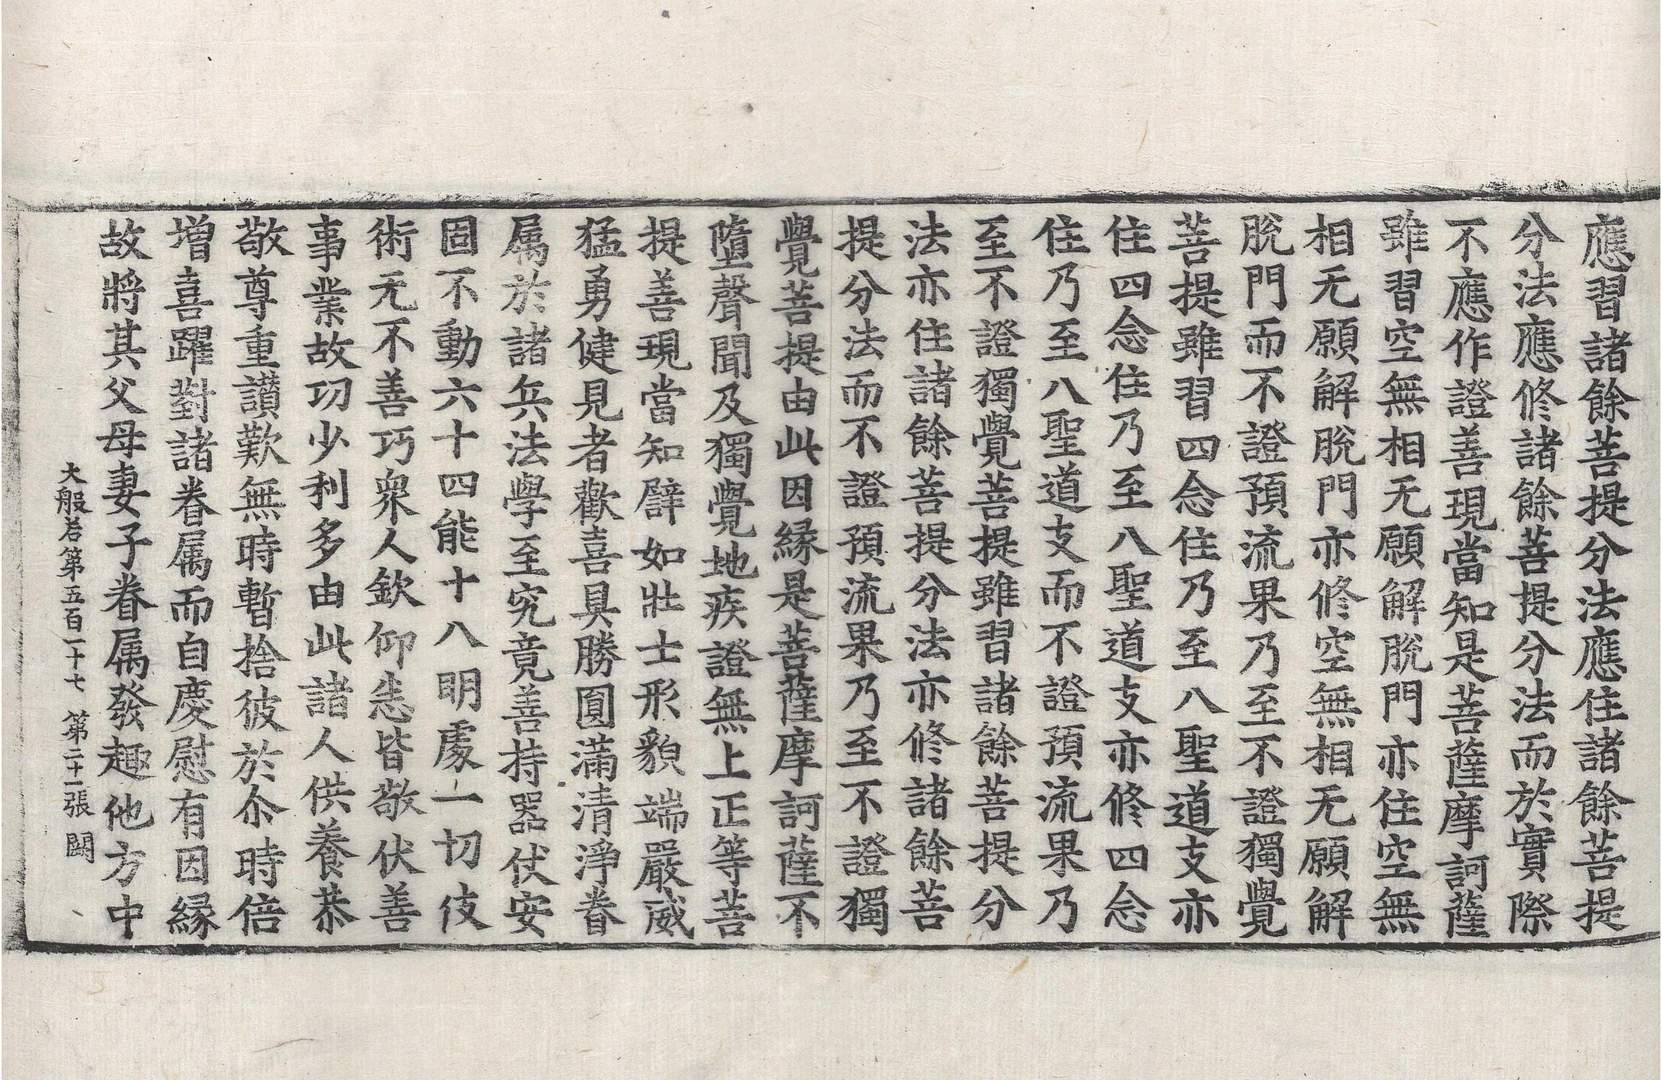 應習諸餘菩提分法應住諸餘菩提
分法應修諸餘菩提分法而於實際
不應作證善現當知是菩薩摩訶薩
雖習空無相无願解脫門亦住空無
相无願解脫門亦修空無相无願解
脫門而不證預流果乃至不證獨覺
菩提雖習四念住乃至八聖道支亦
住四念住乃至八聖道支亦修四念
住乃至八聖道支而不證預流果乃
至不證獨覺菩提雖習諸餘菩提分
法亦住諸餘菩提分法亦修諸餘菩
提分法而不證預流果乃至不證獨
覺菩提由此因緣是菩薩摩訶薩不
墮聲聞及獨覺地疾證無上正等菩
提善現當知譬如壯士形貌端嚴威
猛勇健見者歡喜具勝圓滿清淨眷
属於諸兵法學至究竟善持器仗安
固不動六十四能十八明處一切伎
術无不善巧衆人欽仰悉皆敬伏善
事業故功少利多由此諸人供養恭
敬尊重讃歎無時暫捨彼於尒時倍
增喜躍對諸眷属而自慶慰有因緣
故將其父母妻子眷属發趣他方中
大般若第五百一十七 第二十一張 闕